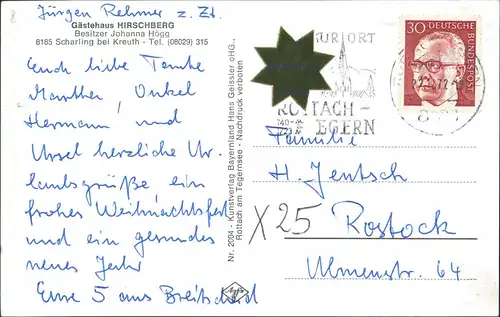 Jürgen Rehmer z. Zt.
Gästehaus HIRSCHBERG
Besitzer Johanna Högg
8185 Scharling bei Kreuth - Tel. (08029) 315
Euch liebe Tante
Marthel, Onkel
Hermann und
Ursel herzliche Ur-
laubsgrüße ein
frohes Weihnachtsfest
und ein gesundes
neues Jahr
Eure 5 aus Breitscheid
Nr. 2004 - Kunstverlag Bayernland Hans Geissler oHG.,
Rottach am Tegernsee - Nachdruck verboten
Agfa
KURORT
ROTTACH-
EGERN
740-
30
DEUTSCHE
BUNDESPOST
Familie
H. Jentsch
X 25 Rostock
Ulmenstr. 64